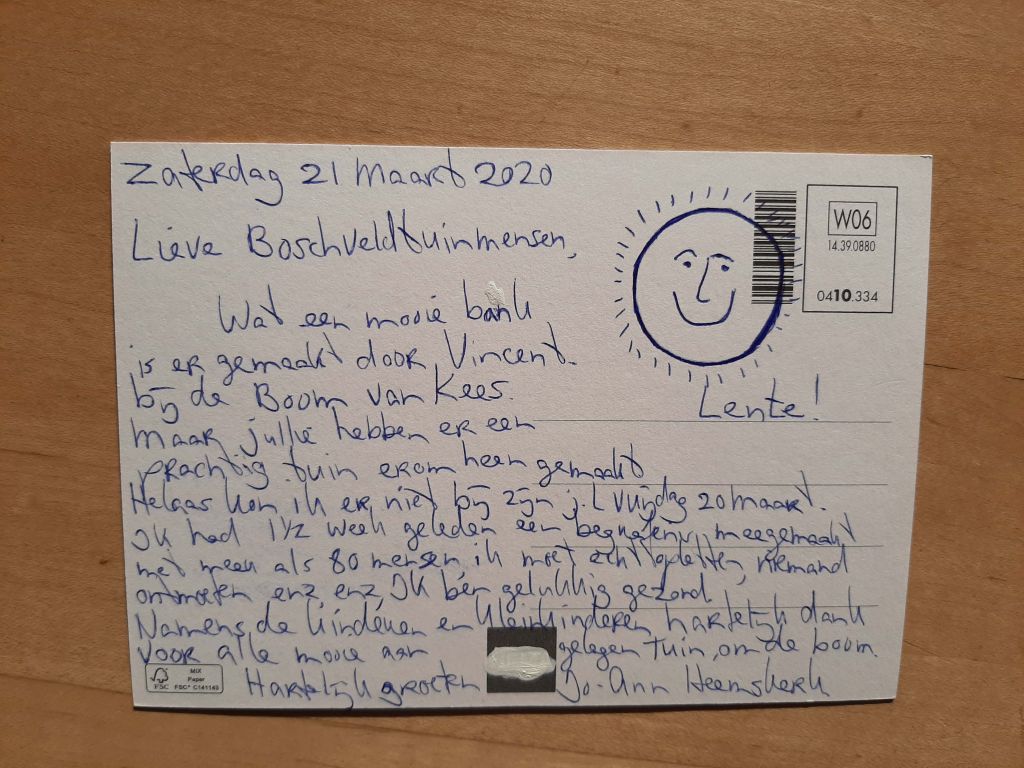 Zaterdag 21 Maart 2020
Lieve Boschveldtuinmensen,
Wat een mooie bank
is er gemaakt door Vincent.
bij de Boom van Kees.
Maar jullie hebben er een
prachtig tuin erom heen gemaakt
Helaas kon ik er niet bij zijn j.l vrijdag 20 maart.
Ik had 1½ week geleden een begrafenis meegemaakt
met meer als 80 mensen ik moet echt opletten, niemand
ontmoeten enz, enz, Ik ben gelukkig gezond
Namens de kinderen en kleinkinderen hartelijk dank
voor alle mooie aangelegen tuin, om de boom.
Hartelijk groeten Jo-Ann Heemskerk
Lente!
W06
14.39.0880
0410.334
FSC
MIX
Paper
FSC® C141143